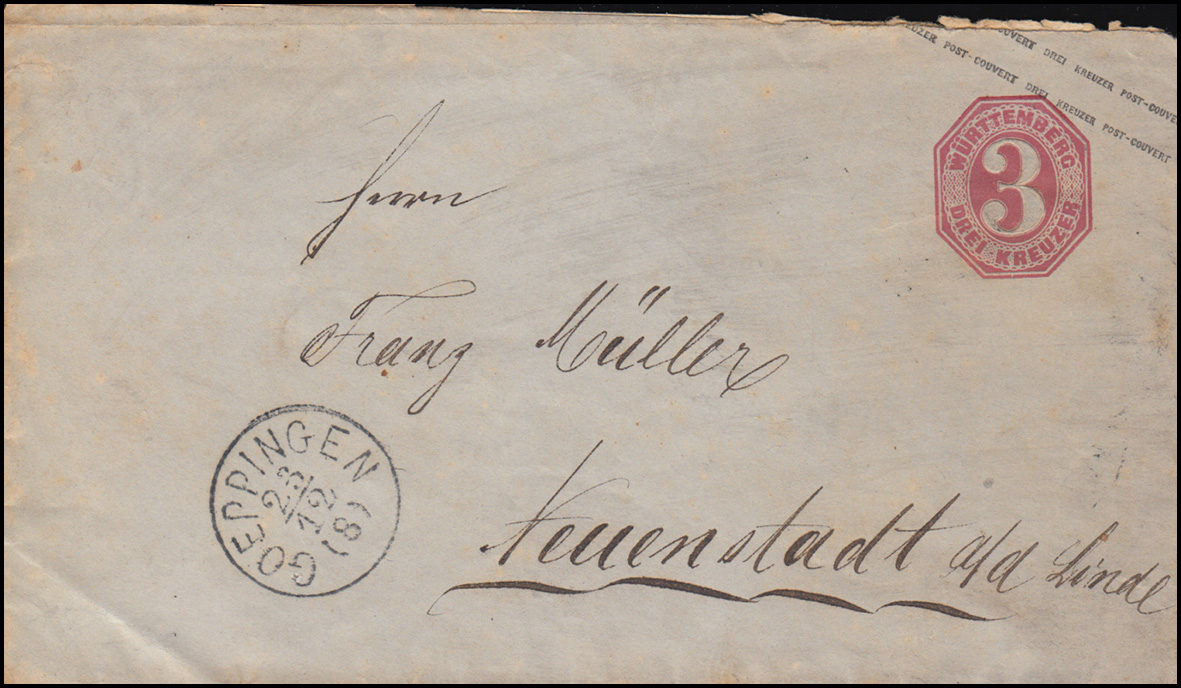 COUVERT DREI KREUZER POST-COUVE
EUZER POST-COUVERT DREI KREUZER POST-COUVERT
WÜRTTEMBERG
3
DREI KREUZER
Herrn
Franz Müller
Neuenstadt a/d Linde
GOEPPINGEN
23/12
(8)